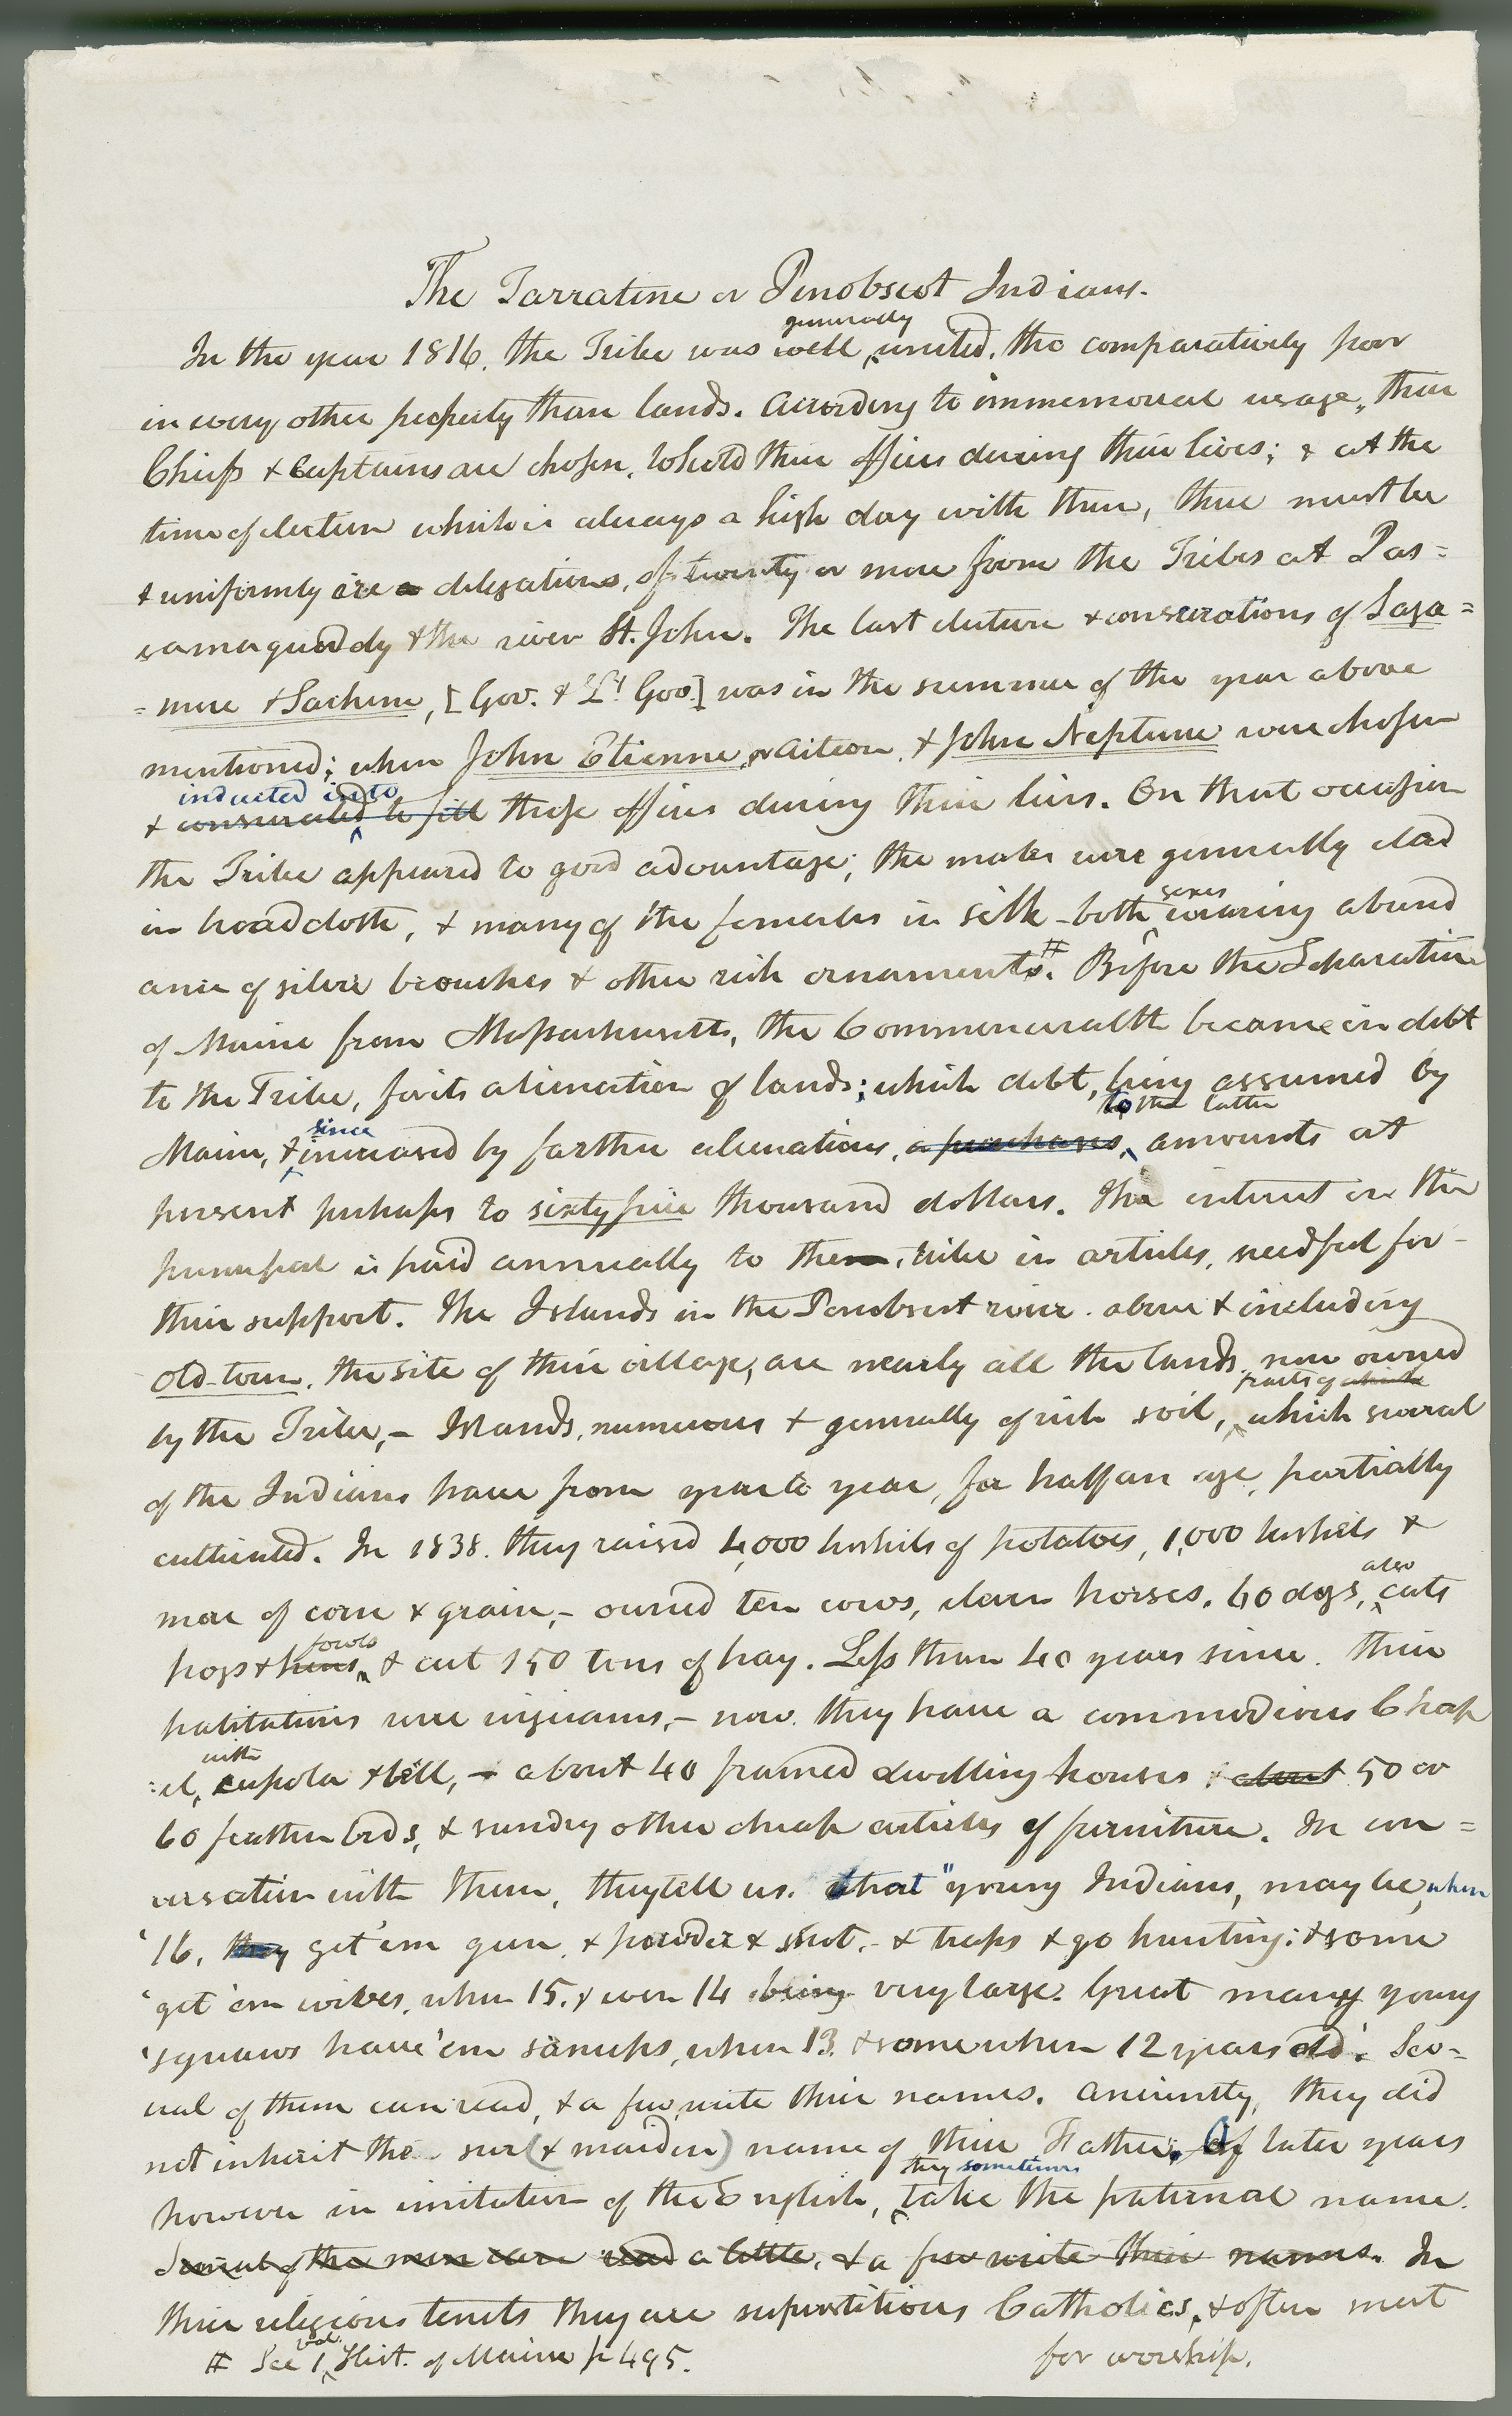 The Tarratine or Penobscot Indians.
generally
In the year 1816, the Tribe was well united, tho comparatively poor
in every other property than lands. According to immemorial usage, their
Chiefs & Captains are chosen, to hold their offices during their lives; & at the
time of election which is always a high day with them, there must be
& uniformly are a delegations, of twenty or more from the Tribes at Pas=
samaquoddy & the river St. John. The last election & consecrations of Saga=
=more & Sachem, [Gov. & Lt Gov.] was in the summer of the year above
mentioned; when John Etienne, or Aiteon, & John Neptune were chosen
inducted into
& consecrated to fill those offices during their lives. On that occasion
the Tribe appeared to good advantage; the males were generally clad
sexes
in broadcloth, & many of the females in silk - both wearing abund
ance of silver brouches & other rich ornaments.# Before the Separation
of Maine from Massachusetts, the Commonwealth became in debt
to the Tribe, for its alienation of lands; which debt, being assumed by
since to the latter
Maine, & increased by farther alienations, a purchases, amounts at
present perhaps to sixty five thousand dollars. The interest on the
principal is paid annually to them, tribe in articles, needful for
their support. The Islands in the Penobscot river above & including
Old-town, the site of their village, are nearly all the lands, now owned
parts of which
by the Tribe,- Islands, numerous & generally of rich soil, which several
of the Indians have from year to year, for half an age, partially
cultivated. In 1838, they raised 4,000 bushels of potatoes, 1,000 bushels &
also
more of corn & grain,- owned ten cows, eleven horses, 60 dogs, cats
fowls
hogs & hens, & cut 150 tons of hay. Less than 40 years since, their
habitations were wigwams,- now, they have a commodious Chap
with
=el, cupola & bell,- about 40 framed dwelling houses; about 50 or
60 feather beds, & sundry other cheap articles of furniture. In con=
versation with them, they tell us, that "young Indians, may be, when
'16, they get'em gun, & powder & shot,- & traps & go hunting: & some
'get 'em wives, when 15, & even 14 being very large. Great many young
'squaws have 'em sanups, when 13, & some when 12 years old'. Sev=
eral of them can read, & a few write their names. Anciently, they did
not inherit the sur (& maiden) name of their Father. Of later years
they sometimes
however in imitation of the English, take the paternal name.
Several of the men can read a little, & a few write their names. In
their religious tenets they are superstitious Catholics, & often meet
for worship.
# See 1 vol. Hist. of Maine p 495.